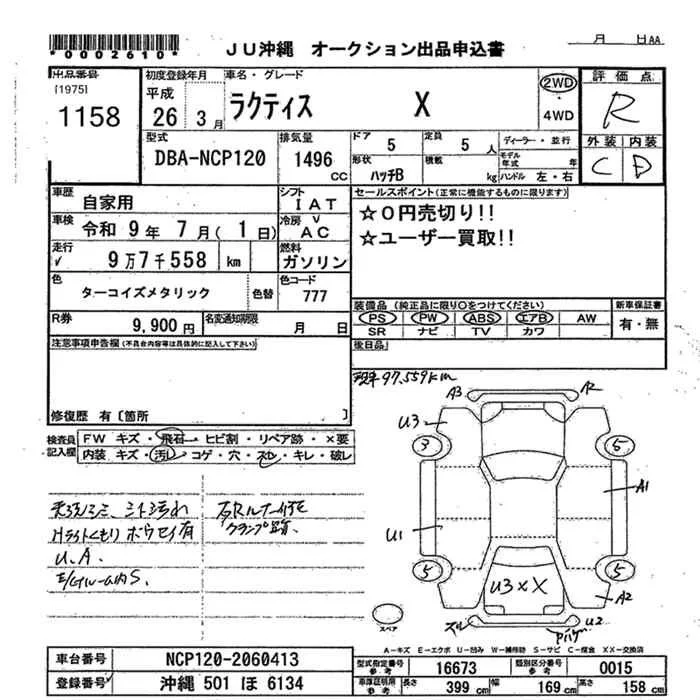 *0002610*
JU沖縄 オークション出品申込書
月 日 AA
出品番号
[1975]
1158
初度登録年月
平成
26 3月
車名・グレード
ラクティス X
2WD
・
4WD
評価点
R
外装 内装
C D
型式
DBA-NCP120
排気量
1496
CC
ドア
5
定員
5 人
形状
ハッチB
積載
kg
ディーラー・並行
モデル年式 年
ハンドル 左・右
車歴
自家用
シフト
IAT
車検
令和 9年 7月( 1日)
冷房
AC
走行
9万7千558 km
燃料
ガソリン
色
ターコイズメタリック
色替
色コード
777
R券
9,900 円
名変通知期限
月 日
セールスポイント(正常に機能するものに限ります)
☆0円売切り!!
☆ユーザー買取!!
装備品 (純正品に限り○をつけてください)
PS PW ABS エアB AW
SR ナビ TV カワ
新車保証書
有・無
後日品
注意事項申告欄(不具合内容等は具体的に記入して下さい)
修復歴 有〔箇所 〕
検査員
記入欄
FW キズ・飛石・ヒビ割・リペア跡・×要
内装 キズ・汚れ・コゲ・穴・スレ・キレ・破レ
97,559km
Hライトくもり
U.A.
A3
R
U3
3
5
A1
U1
5
5
U3××
A2
U2
スペア
A-キズ E-エクボ U-凹み W-補修跡 S-サビ C-腐食 XX-交換済
車台番号
NCP120-2060413
登録番号
沖縄 501 ほ 6134
型式指定番号
参考
16673
類別区分番号
参考
0015
車庫証明用
参考
長さ 399 cm 幅 169 cm 高さ 158 cm